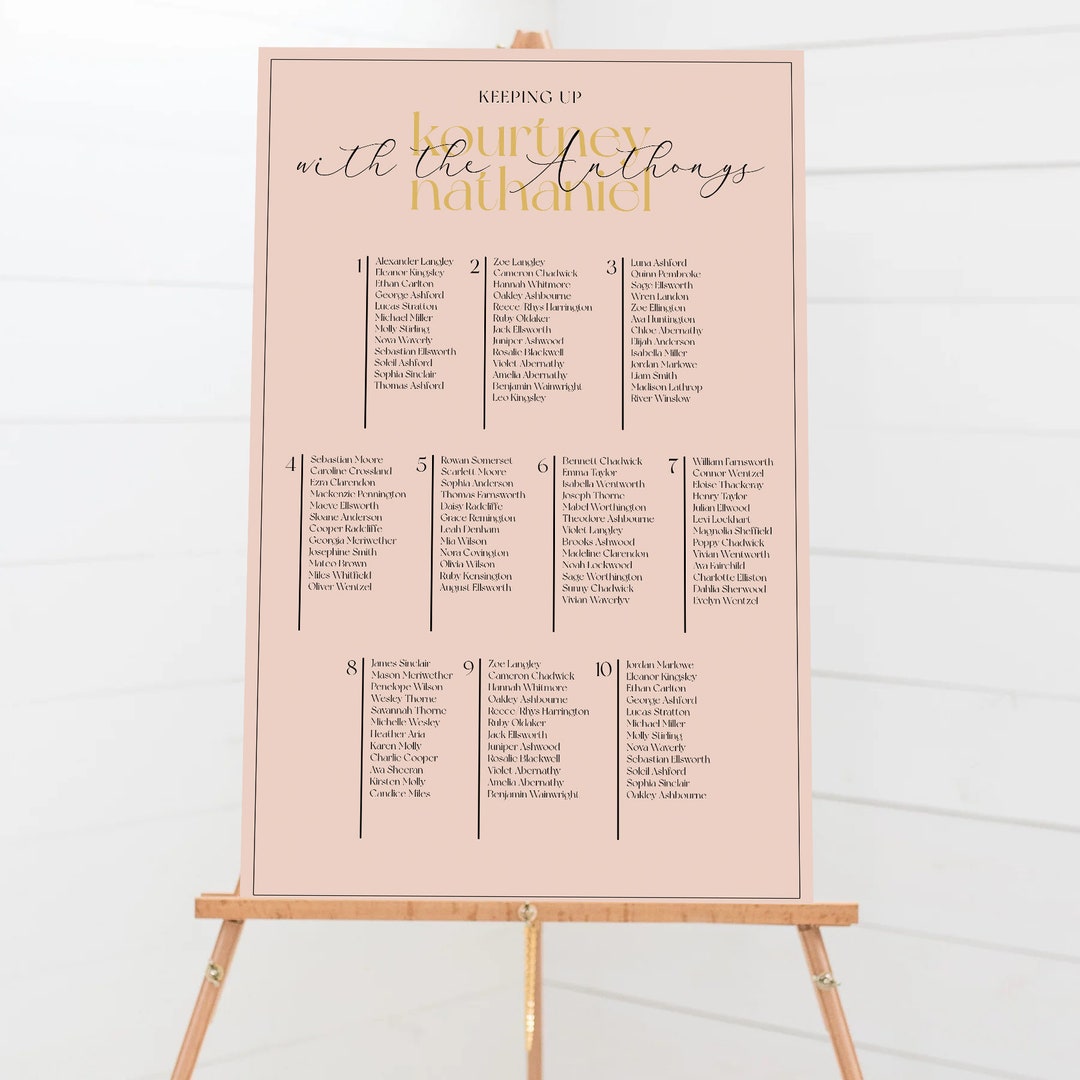 KEEPING UP
kourtney
with the Anthonys
nathaniel
1
Alexander Langley
Eleanor Kingsley
Ethan Carlton
George Ashford
Lucas Stratton
Michael Miller
Molly Stirling
Nova Waverly
Sebastian Ellsworth
Soleil Ashford
Sophia Sinclair
Thomas Ashford
2
Zoe Langley
Cameron Chadwick
Hannah Whitmore
Oakley Ashbourne
Reece/Rhys Harrington
Ruby Oldaker
Jack Ellsworth
Juniper Ashwood
Rosalie Blackwell
Violet Abernathy
Amelia Abernathy
Benjamin Wainwright
Leo Kingsley
3
Luna Ashford
Quinn Pembroke
Sage Ellsworth
Wren Landon
Zoe Ellington
Ava Huntington
Chloe Abernathy
Elijah Anderson
Isabella Miller
Jordan Marlowe
Liam Smith
Madison Lathrop
River Winslow
4
Sebastian Moore
Caroline Crossland
Ezra Clarendon
Mackenzie Pennington
Maeve Ellsworth
Sloane Anderson
Cooper Radcliffe
Georgia Meriwether
Josephine Smith
Mateo Brown
Miles Whitfield
Oliver Wentzel
5
Rowan Somerset
Scarlett Moore
Sophia Anderson
Thomas Farnsworth
Daisy Radcliffe
Grace Remington
Leah Denham
Mia Wilson
Nora Covington
Olivia Wilson
Ruby Kensington
August Ellsworth
6
Bennett Chadwick
Emma Taylor
Isabella Wentworth
Joseph Thorne
Mabel Worthington
Theodore Ashbourne
Violet Langley
Brooks Ashwood
Madeline Clarendon
Noah Lockwood
Sage Worthington
Sunny Chadwick
Vivian Waverlyv
7
William Farnsworth
Connor Wentzel
Eloise Thackeray
Henry Taylor
Julian Ellwood
Levi Lockhart
Magnolia Sheffield
Poppy Chadwick
Vivian Wentworth
Ava Fairchild
Charlotte Elliston
Dahlia Sherwood
Evelyn Wentzel
8
James Sinclair
Mason Meriwether
Penelope Wilson
Wesley Thorne
Savannah Thorne
Michelle Wesley
Heather Aria
Karen Molly
Charlie Cooper
Ava Sheeran
Kirsten Molly
Candice Miles
9
Zoe Langley
Cameron Chadwick
Hannah Whitmore
Oakley Ashbourne
Reece/Rhys Harrington
Ruby Oldaker
Jack Ellsworth
Juniper Ashwood
Rosalie Blackwell
Violet Abernathy
Amelia Abernathy
Benjamin Wainwright
10
Jordan Marlowe
Eleanor Kingsley
Ethan Carlton
George Ashford
Lucas Stratton
Michael Miller
Molly Stirling
Nova Waverly
Sebastian Ellsworth
Soleil Ashford
Sophia Sinclair
Oakley Ashbourne